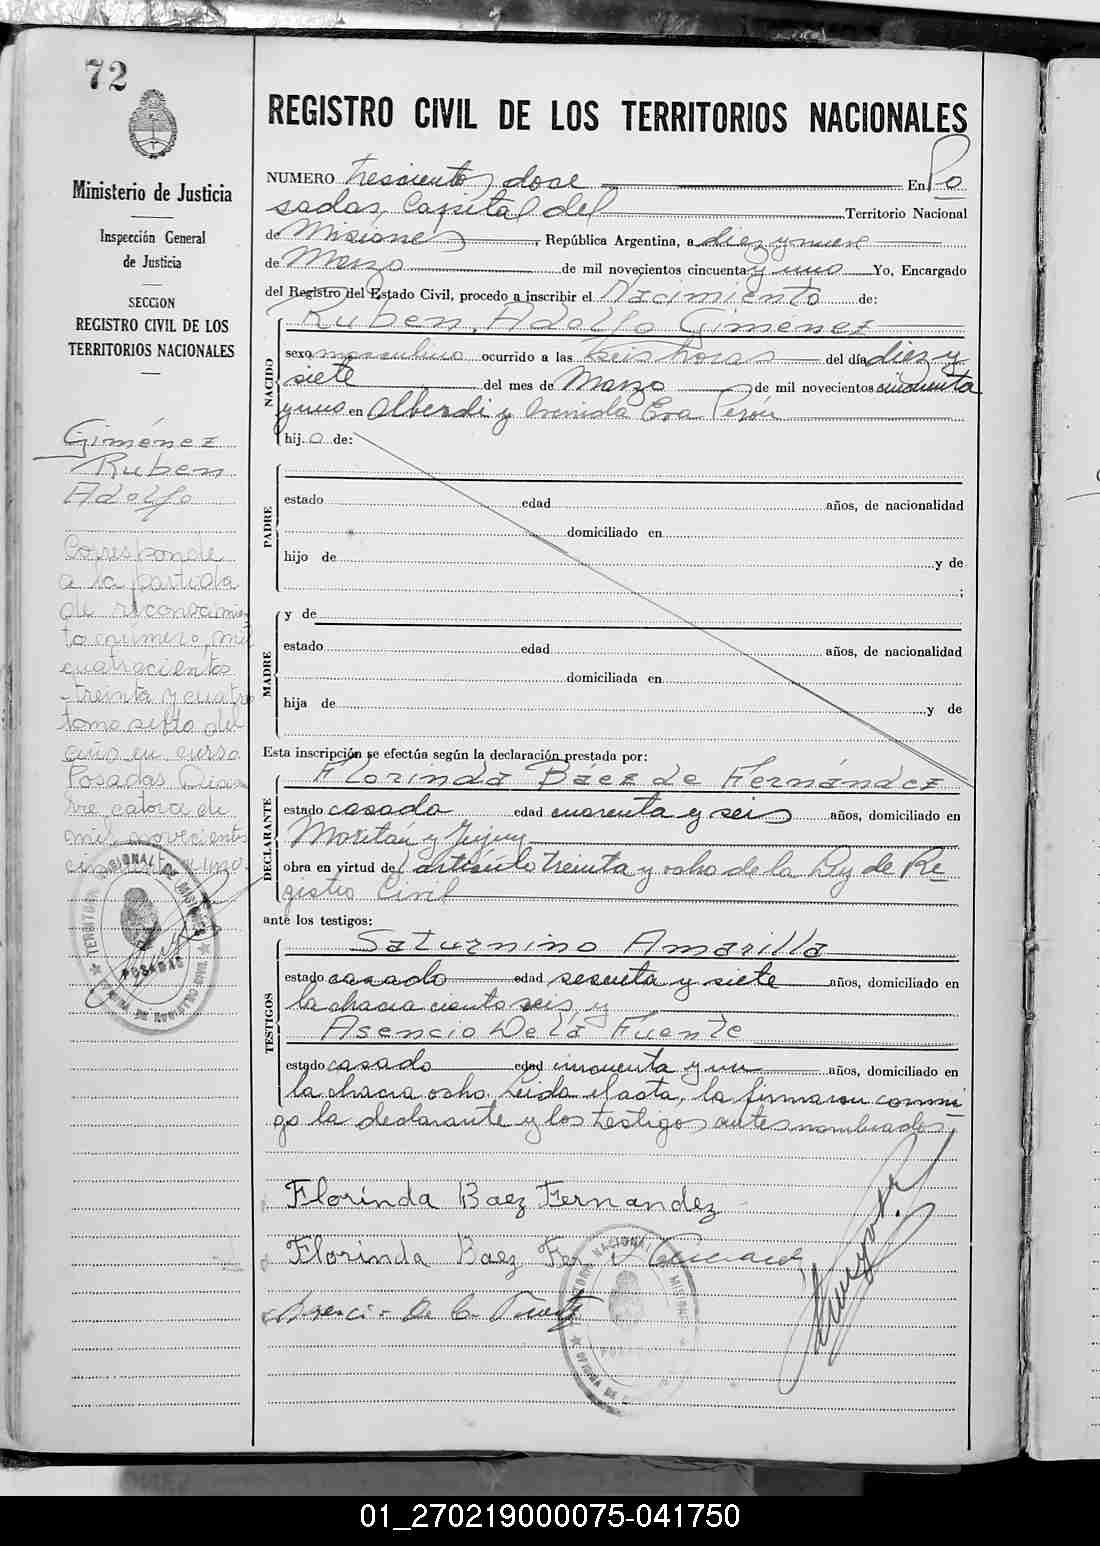 72
Ministerio de Justicia
Inspección General
de Justicia
SECCION
REGISTRO CIVIL DE LOS
TERRITORIOS NACIONALES
Giménez
Ruben
Adolfo
Corresponde
a la partida
de reconocimien
to número, mil
cuatrocientos
treinta y cuatro
tomo sexto del
año en curso
Posadas Diciem
bre catorce de
mil novecientos
cincuenta y uno.
TERRITORIO NACIONAL DE MISIONES
POSADAS
OFICINA DE REGISTRO CIVIL
REGISTRO CIVIL DE LOS TERRITORIOS NACIONALES
NUMERO trescientos doce En Po
sadas, Capital del Territorio Nacional
de Misiones, República Argentina, a diez y nueve
de Marzo de mil novecientos cincuenta y uno Yo, Encargado
del Registro del Estado Civil, procedo a inscribir el Nacimiento de:
NACIDO
Ruben, Adolfo Giménez
sexo masculino ocurrido a las seis horas del día diez y
siete del mes de Marzo de mil novecientos cincuenta
y uno en Alberdi y Avenida Eva Perón
hijo de:
PADRE
estado edad años, de nacionalidad
domiciliado en
hijo de y de
;
MADRE
y de
estado edad años, de nacionalidad
domiciliada en
hija de y de
Esta inscripción se efectúa según la declaración prestada por:
DECLARANTE
Florinda Báez de Fernández
estado casada edad cuarenta y seis años, domiciliado en
Moritán y Jujuy
obra en virtud del artículo treinta y ocho de la Ley de Re
gistro Civil
ante los testigos:
TESTIGOS
Saturnino Amarilla
estado casado edad sesenta y siete años, domiciliado en
la chacra ciento seis, y
Asencio De la Fuente
estado casado edad cincuenta y un años, domiciliado en
la chacra ocho. Leida el acta, la firmaron conmi
go la declarante y los testigos antes nombrados.
Florinda Baez Fernandez
Florinda Baez Fer
Asenci- De la Fuente
TERRITORIO NACIONAL MISIONES
POSADAS
OFICINA DE
01_270219000075-041750